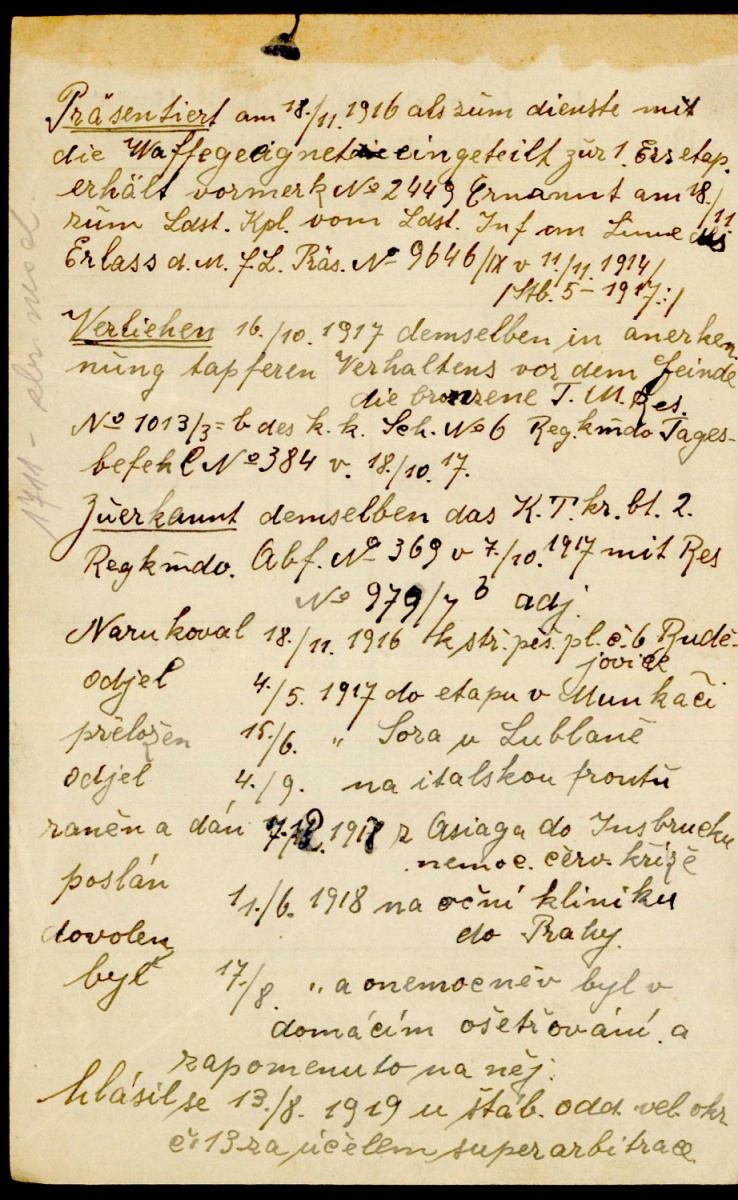 Präsentiert am 18./11. 1916 als zum dienste mit
die Waffegeeignet eingeteilt zur 1. Ersetap.
erhält vormerk No 2449 Ernannt am 18./11.
zum Ldst. Kpl. vom Ldst. Inf am Sinne des
Erlass d. M. f L. Präs. No 9646/IX v 11./11. 1914/
/Stb. 5 – 1917:/
Verliehen 16./10. 1917 demselben in anerken
nung tapferen Verhaltens vor dem Feinde
die bronzene T. M. Res.
No 1013/3 = b des k. k. Sch. No 6 Regkmdo Tages-
befehl No 384 v. 18./10. 17.
Zuerkannt demselben das K. T. kr. bt. 2.
Regkmdo. Abf. No 369 v 7./10. 1917 mit Res
No 979/7 b adj.
Narukoval 18./11. 1916 k stř. pěš. pl. č. 6 Budě-
jovice
odjel 4./5. 1917 do etapu v Munkači
přeložen 15./6. " Sora u Lublaně
odjel 4./9. na italskou frontu
raněn a dán 1917 z Asiaga do Insbrucku
nemoc. červ. kříže
poslán 11./6. 1918 na oční kliniku
do Prahy.
dovolen
byl 17./8. " a onemocněv byl v
domácím ošetřování a
zapomenuto na něj.
hlásil se 13./8. 1919 u štáb. odd. vel. okr.
č. 13 za účelem superarbitrace.